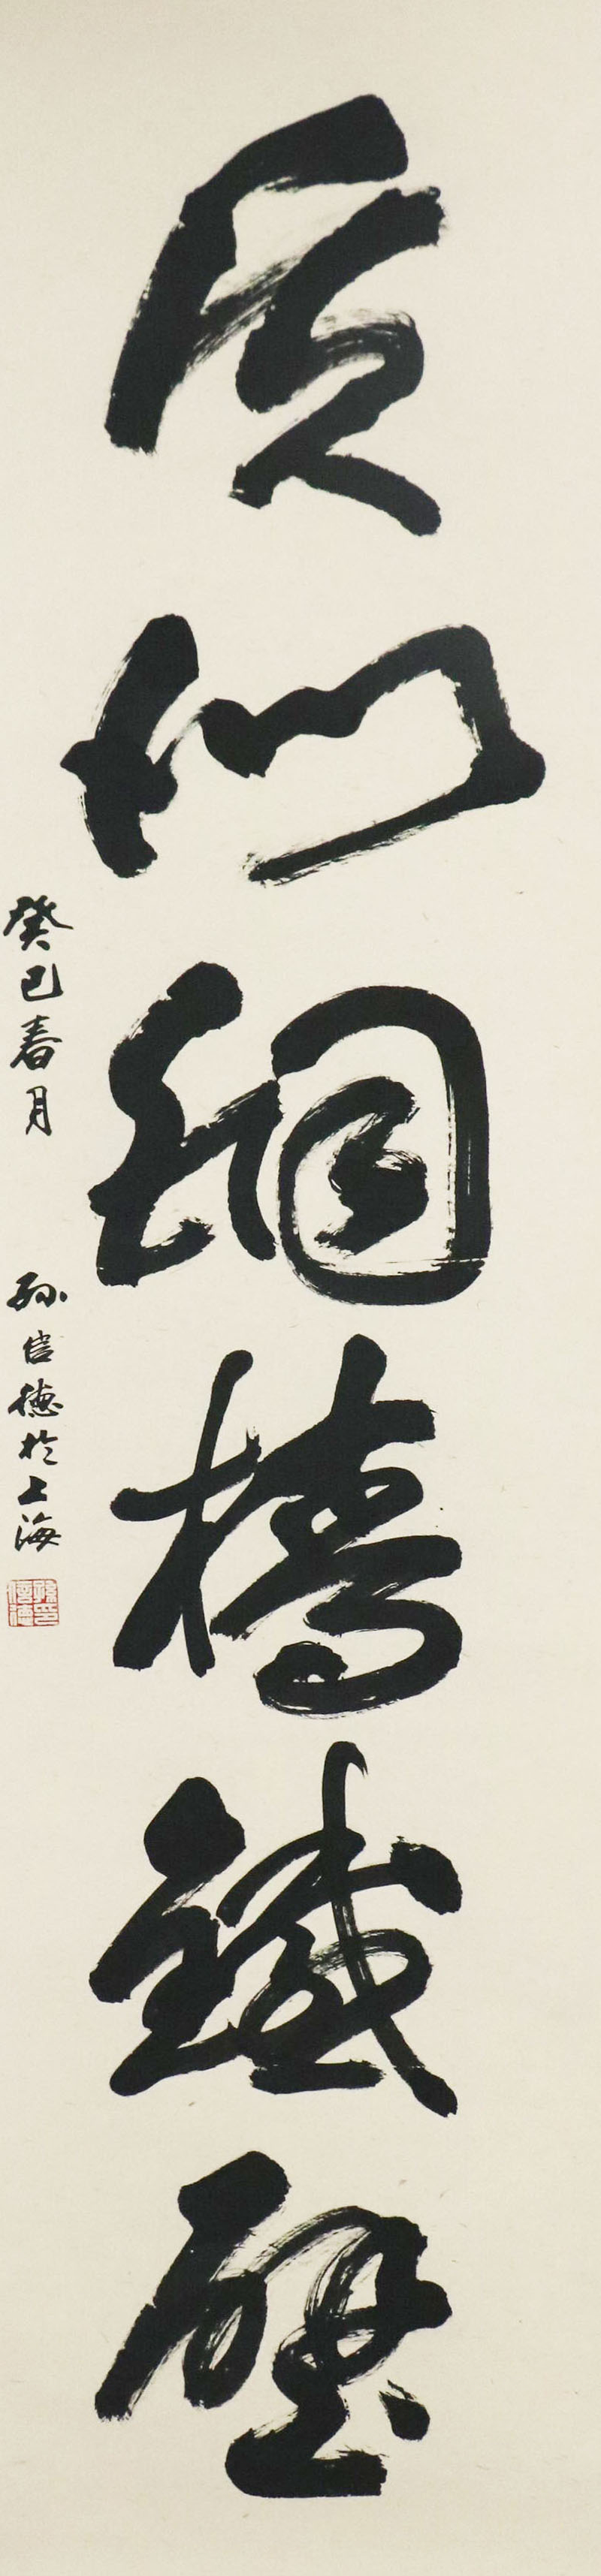 質似銅牆鐵壁
癸巳春月 孫信德於上海
孫信德印